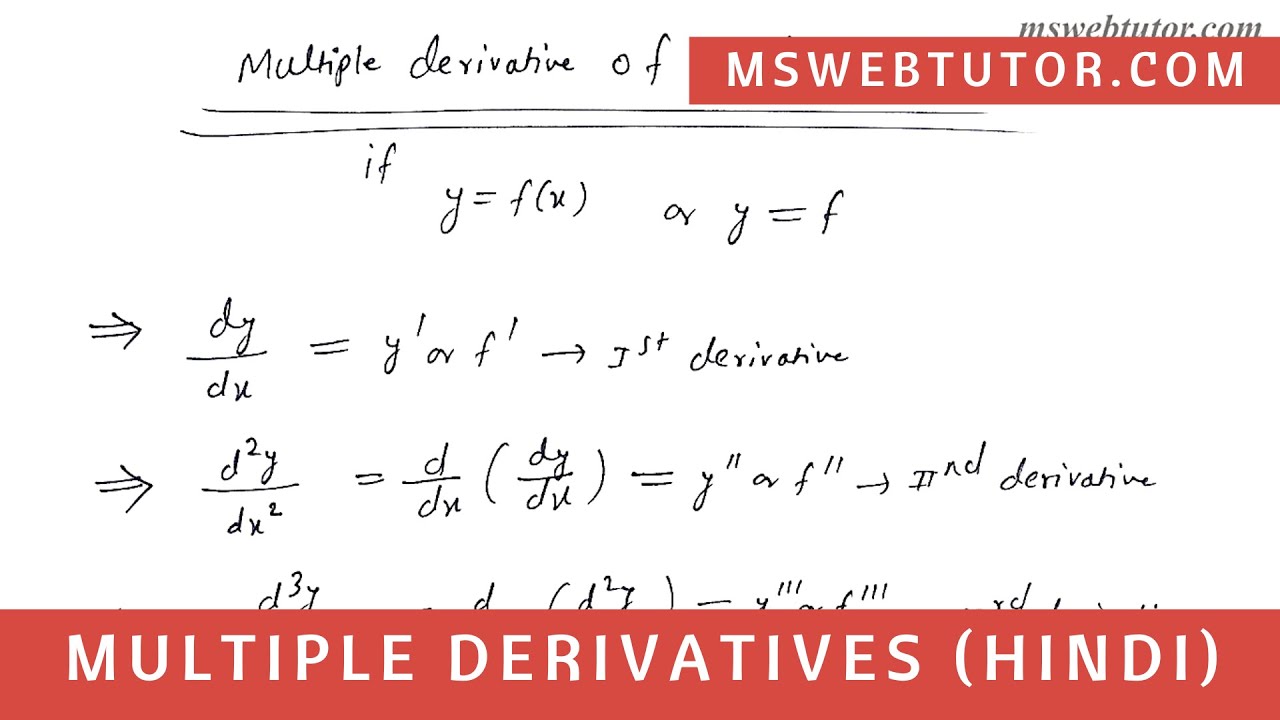 mswebtutor.com
Multiple derivative of
MSWEBTUTOR.COM
if
y = f(x) or y = f
⇒ dy/dx = y' or f' → Ist derivative
⇒ d²y/dx² = d/dx (dy/dx) = y'' or f'' → IInd derivative
d³y = d (d²y) = y''' or f''' rd
MULTIPLE DERIVATIVES (HINDI)